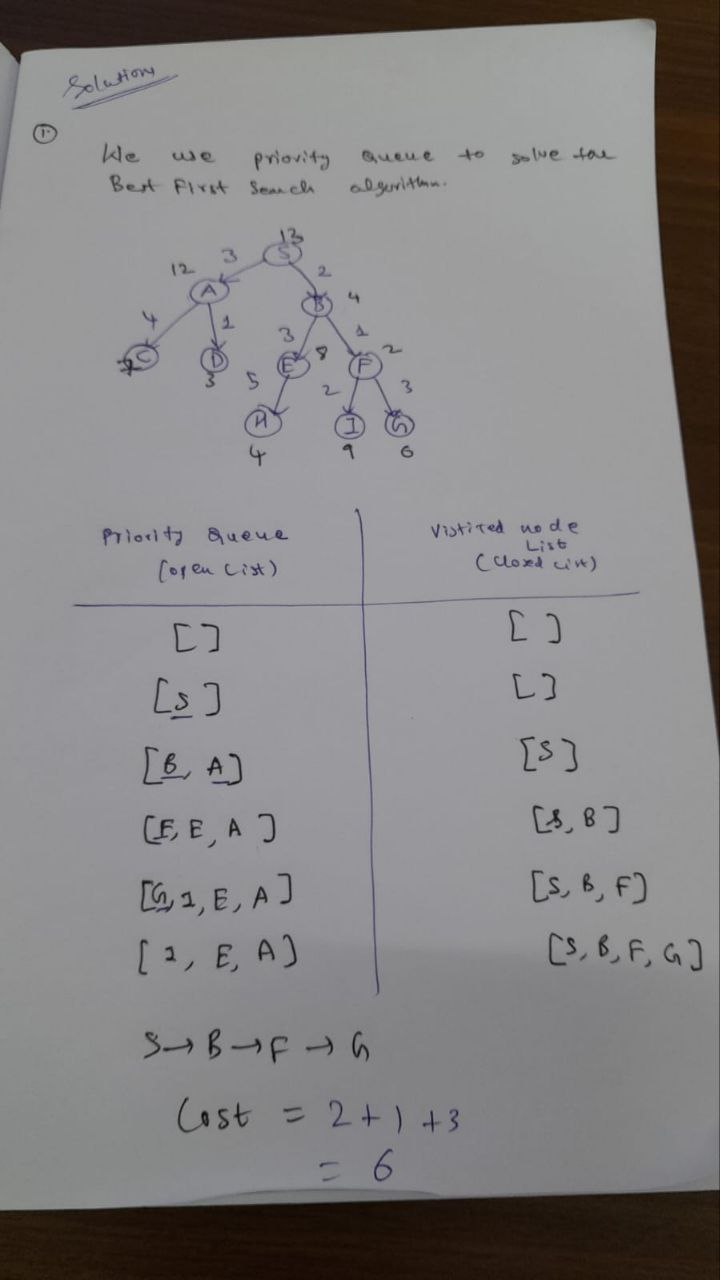 Solutions
1.
We use priority Queue to solve the
Best First Search algorithm.
13
S
3
2
12
A
B
4
4
1
3
8
1
2
C
D
E
F
7
3
5
2
3
H
I
G
4
9
6
Priority Queue
(open List)
Visited node
List
(Closed List)
[ ] [ ]
[S] [ ]
[B, A] [S]
[F, E, A] [S, B]
[G, I, E, A] [S, B, F]
[I, E, A] [S, B, F, G]
S→B→F→G
Cost = 2+1+3
= 6